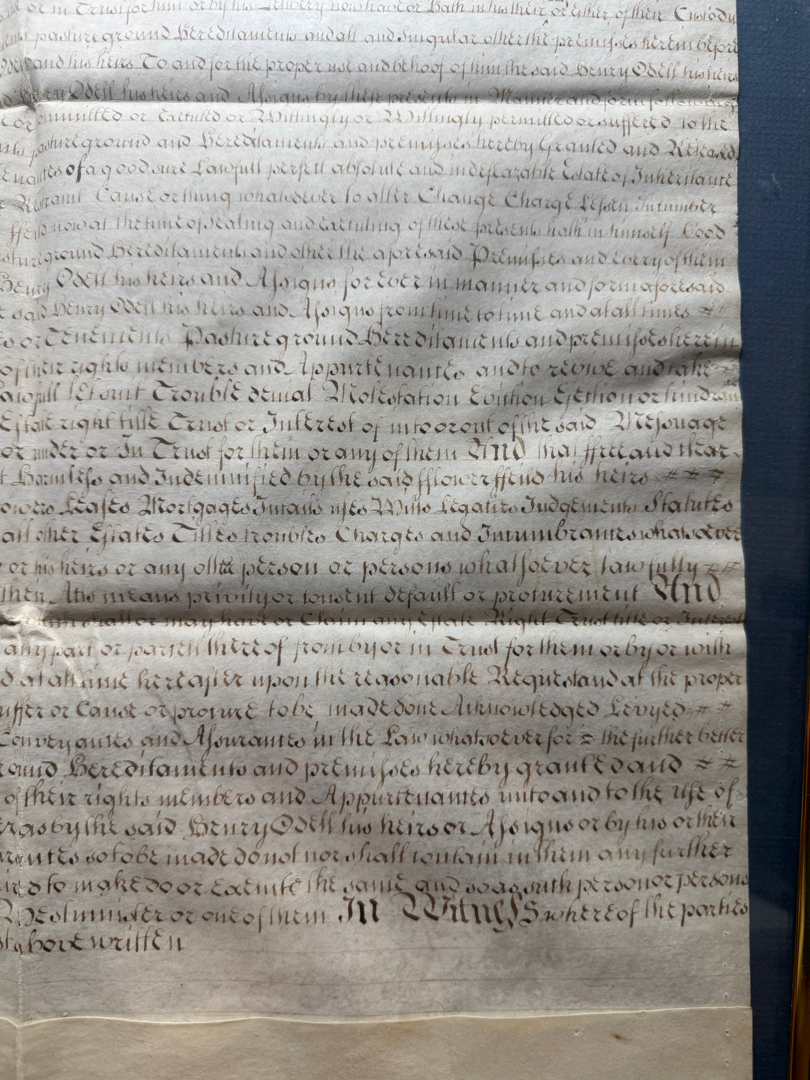 or in Trust for him or by his Delivery now have or Hath in his their or either of their Custody
pasture ground Hereditaments and all and Singular other the premisses herein before
Odell and his heirs To and for the proper use and behoof of him the said Henry Odell his heirs
Henry Odell his heirs and Assigns by these presents in Manner and form following
Committed or Executed or Wittingly or Willingly permitted or suffered to the
pasture ground and Hereditaments and premisses hereby Granted and Released
of a good sure Lawfull perfect absolute and indefeazable Estate of Inheritance
Cause or thing whatsoever to alter Change Charge Lessen Incumber
now at the time of Sealing and executing of these presents hath in himself Good
pasture ground Hereditaments and other the aforesaid Premisses and every of them
Henry Odell his heirs and Assigns for ever in manner and form aforesaid
said Henry Odell his heirs and Assigns from time to time and at all times
or Tenements Pasture ground Hereditaments and premisses herein
of their rights members and Appurtenances and to receive and take
Lawfull let suit Trouble denial Molestation Eviction Ejection or hindrance
Estate right title Trust or Interest of in to or out of the said Messuage
or under or In Trust for them or any of them And that ffree and clear
Harmless and Indemnified by the said fflowerffend his heirs
Leases Mortgages Intails uses Wills Legacies Judgements Statutes
all other Estates Titles troubles Charges and Incumbrances whatsoever
or his heirs or any other person or persons whatsoever lawfully
their Acts means privity or consent default or procurement And
shall or may have or Claim any Estate Right Trust title or Interest
any part or parcell thereof from by or in Trust for them or by or with
at all time hereafter upon the reasonable Request and at the proper
suffer or Cause or procure to be made done Acknowledged Levyed
Conveyances and Assurances in the Law whatsoever for the further better
and Hereditaments and premisses hereby granted and
of their rights members and Appurtenances unto and to the use of
as by the said Henry Odell his heirs or Assigns or by his or their
so to be made do not nor shall contain in them any further
to make do or execute the same and so as such person or persons
Westminster or one of them In Witness whereof the parties
above written